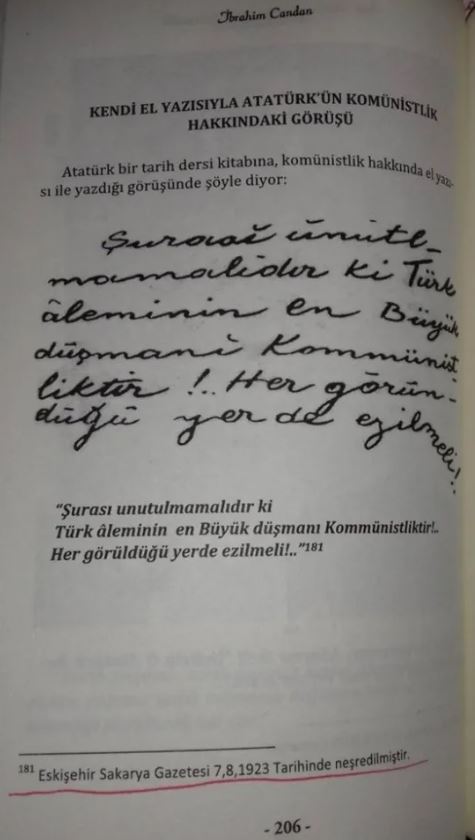 İbrahim Candan
KENDİ EL YAZISIYLA ATATÜRK'ÜN KOMÜNİSTLİK
HAKKINDAKİ GÖRÜŞÜ
Atatürk bir tarih dersi kitabına, komünistlik hakkında el yazı-
sı ile yazdığı görüşünde şöyle diyor:
Şurası ünütl-
mamalıdır ki Türk
âleminin en Büyük
düşmanı Kommünist
liktir !.. Her görün-
düğü yerde ezilmeli!..
"Şurası unutulmamalıdır ki
Türk âleminin en Büyük düşmanı Kommünistliktir!..
Her görüldüğü yerde ezilmeli!.."181
181 Eskişehir Sakarya Gazetesi 7,8,1923 Tarihinde neşredilmiştir.
- 206 -